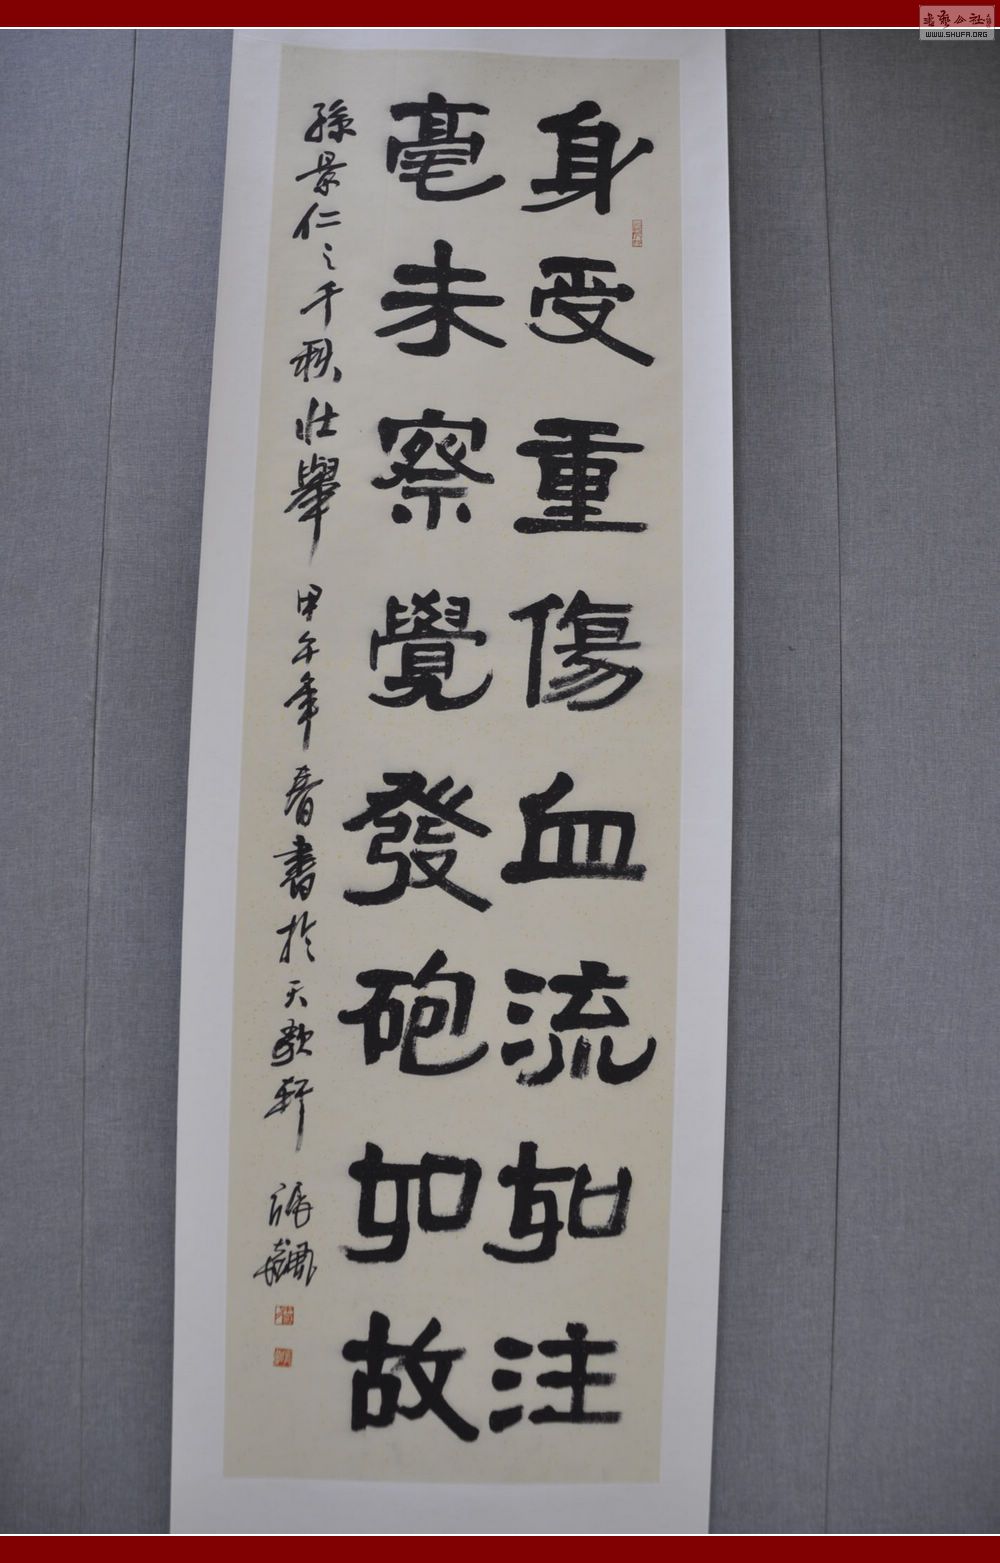 身受重傷血流如注
毫未察覺發砲如故
孫景仁之千秋壯舉 甲午年春書於天歌軒 張飆
書藝公社
WWW.SHUFA.ORG